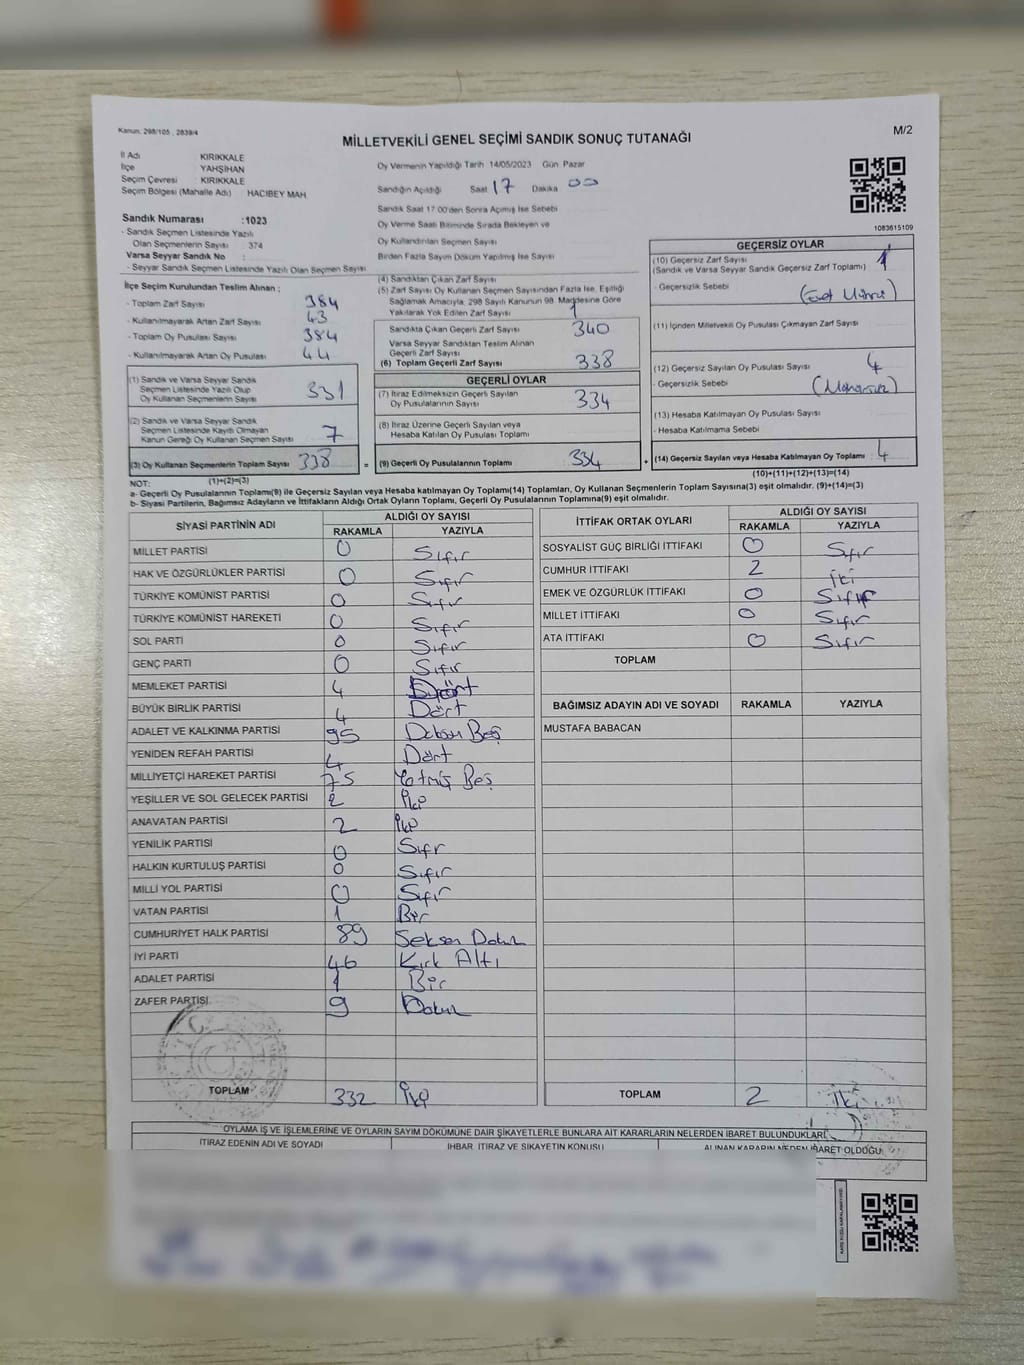 Kanun: 298/105 , 2839/4
MİLLETVEKİLİ GENEL SEÇİMİ SANDIK SONUÇ TUTANAĞI
M/2
İl Adı KIRIKKALE
İlçe YAHŞİHAN
Seçim Çevresi KIRIKKALE
Seçim Bölgesi (Mahalle Adı) HACIBEY MAH.
Oy Vermenin Yapıldığı Tarih 14/05/2023 Gün Pazar
Sandığın Açıldığı Saat 17 Dakika 00
Sandık Saat 17.00'den Sonra Açılmış İse Sebebi
Oy Verme Saati Bitiminde Sırada Bekleyen ve
Oy Kullandırılan Seçmen Sayısı
Birden Fazla Sayım Döküm Yapılmış İse Sayısı
1083615109
Sandık Numarası :1023
- Sandık Seçmen Listesinde Yazılı
Olan Seçmenlerin Sayısı : 374
Varsa Seyyar Sandık No :
- Seyyar Sandık Seçmen Listesinde Yazılı Olan Seçmen Sayısı
İlçe Seçim Kurulundan Teslim Alınan ;
- Toplam Zarf Sayısı 384
- Kullanılmayarak Artan Zarf Sayısı 43
- Toplam Oy Pusulası Sayısı 384
- Kullanılmayarak Artan Oy Pusulası 44
(1) Sandık ve Varsa Seyyar Sandık
Seçmen Listesinde Yazılı Olup
Oy Kullanan Seçmenlerin Sayısı 331
(2) Sandık ve Varsa Seyyar Sandık
Seçmen Listesinde Kayıtlı Olmayan
Kanun Gereği Oy Kullanan Seçmen Sayısı 7
(3) Oy Kullanan Seçmenlerin Toplam Sayısı 338
(1)+(2)=(3)
(4) Sandıktan Çıkan Zarf Sayısı
(5) Zarf Sayısı Oy Kullanan Seçmen Sayısından Fazla İse, Eşitliği
Sağlamak Amacıyla, 298 Sayılı Kanunun 98. Maddesine Göre
Yakılarak Yok Edilen Zarf Sayısı 1
Sandıkta Çıkan Geçerli Zarf Sayısı 340
Varsa Seyyar Sandıktan Teslim Alınan
Geçerli Zarf Sayısı
(6) Toplam Geçerli Zarf Sayısı 338
GEÇERLİ OYLAR
(7) İtiraz Edilmeksizin Geçerli Sayılan
Oy Pusulalarının Sayısı 334
(8) İtiraz Üzerine Geçerli Sayılan veya
Hesaba Katılan Oy Pusulası Toplamı
= (9) Geçerli Oy Pusulalarının Toplamı 334
GEÇERSİZ OYLAR
(10) Geçersiz Zarf Sayısı 1
(Sandık ve Varsa Seyyar Sandık Geçersiz Zarf Toplamı)
- Geçersizlik Sebebi
(11) İçinden Milletvekili Oy Pusulası Çıkmayan Zarf Sayısı
(12) Geçersiz Sayılan Oy Pusulası Sayısı 4
- Geçersizlik Sebebi
(13) Hesaba Katılmayan Oy Pusulası Sayısı
- Hesaba Katılmama Sebebi
+ (14) Geçersiz Sayılan veya Hesaba Katılmayan Oy Toplamı : 4
(10)+(11)+(12)+(13)=(14)
NOT:
a- Geçerli Oy Pusulalarının Toplamı(9) ile Geçersiz Sayılan veya Hesaba katılmayan Oy Toplamı(14) Toplamları, Oy Kullanan Seçmenlerin Toplam Sayısına(3) eşit olmalıdır. (9)+(14)=(3)
b- Siyasi Partilerin, Bağımsız Adayların ve İttifakların Aldığı Ortak Oyların Toplamı, Geçerli Oy Pusulalarının Toplamına(9) eşit olmalıdır.
SİYASİ PARTİNİN ADI ALDIĞI OY SAYISI
RAKAMLA YAZIYLA
MİLLET PARTİSİ 0 Sıfır
HAK VE ÖZGÜRLÜKLER PARTİSİ 0 Sıfır
TÜRKİYE KOMÜNİST PARTİSİ 0 Sıfır
TÜRKİYE KOMÜNİST HAREKETİ 0 Sıfır
SOL PARTİ 0 Sıfır
GENÇ PARTİ 0 Sıfır
MEMLEKET PARTİSİ 4 Dört
BÜYÜK BİRLİK PARTİSİ 4 Dört
ADALET VE KALKINMA PARTİSİ 95 Doksan Beş
YENİDEN REFAH PARTİSİ 4 Dört
MİLLİYETÇİ HAREKET PARTİSİ 75 Yetmiş Beş
YEŞİLLER VE SOL GELECEK PARTİSİ 2 İki
ANAVATAN PARTİSİ 2 İki
YENİLİK PARTİSİ 0 Sıfır
HALKIN KURTULUŞ PARTİSİ 0 Sıfır
MİLLİ YOL PARTİSİ 0 Sıfır
VATAN PARTİSİ 1 Bir
CUMHURİYET HALK PARTİSİ 89 Seksen Dokuz
İYİ PARTİ 46 Kırk Altı
ADALET PARTİSİ 1 Bir
ZAFER PARTİSİ 9 Dokuz
TOPLAM 332 İki
İTTİFAK ORTAK OYLARI ALDIĞI OY SAYISI
RAKAMLA YAZIYLA
SOSYALİST GÜÇ BİRLİĞİ İTTİFAKI 0 Sıfır
CUMHUR İTTİFAKI 2 İki
EMEK VE ÖZGÜRLÜK İTTİFAKI 0 Sıfır
MİLLET İTTİFAKI 0 Sıfır
ATA İTTİFAKI 0 Sıfır
TOPLAM
BAĞIMSIZ ADAYIN ADI VE SOYADI RAKAMLA YAZIYLA
MUSTAFA BABACAN
TOPLAM 2 İki
OYLAMA İŞ VE İŞLEMLERİNE VE OYLARIN SAYIM DÖKÜMÜNE DAİR ŞİKAYETLERLE BUNLARA AİT KARARLARIN NELERDEN İBARET BULUNDUKLARI
İTİRAZ EDENİN ADI VE SOYADI İHBAR, İTİRAZ VE ŞİKAYETİN KONUSU ALINAN KARARIN NEDEN İBARET OLDUĞU